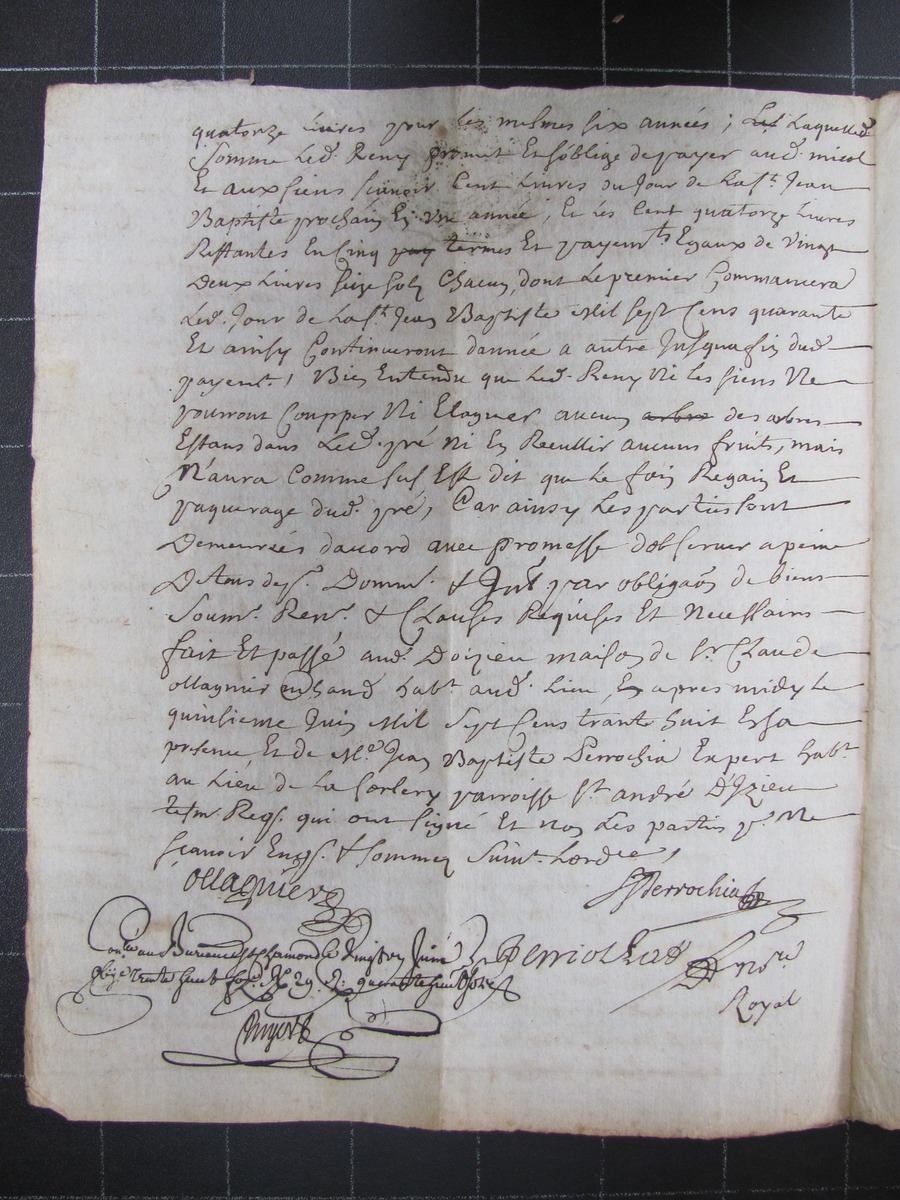 quatorze Livres pour les mesmes six années ; Laquelled.
Somme Led. Remy promet Et soblige de payer aud. micol
Et aux siens scavoir Cent Livres du Jour de La st. Jean
Baptiste prochain En une année, Et les Cent quatorze Livres
Restantes En Cinq pay termes Et payemts. Egaux de Vingt
Deux Livres seize sols Chacun, dont Le premier Commancera
Led. Jour de La st. Jean Baptiste Mil sept Cens quarante
Et ainsy Continueront dannée a autre Jusqua fin dud.
payemt. ; Bien Entendu que Led. Remy Ni les siens Ne
pourront Coupper Ni Elaguer aucun arbre des arbres
Estans dans Led. pré Ni En Recullir aucuns fruits, mais
N'aura Comme sus Est dit que Le foin Regain Et
paquerage dud. pré, Car ainsy Les parties sont
Demeurées daccord avec promesse dobserver a peine
De tous desp. Domm. & Int. par obligaon de biens
Soum. Ren. & Clauses Requises Et Necessaires
fait Et passé aud. Doizieu maison de Sr. Claude
ollagnier habt. aud. Lieu, apres midy Le
quinsieme Juin Mil Sept Cens trante huit En sa
presence Et de Me. Jean Baptiste Perrochia Expert habt.
au Lieu de La parroisse St. andré D'Izieu
tesm. Reqs. qui ont signé Et non Les parties pr. Ne
sçavoir Enqs. & sommez Suivt. Lordce.
ollagnier
JPerrochia
Conlé. au Bureau de St Chamond le Vingt Juin
trente huit fol. 29
nore.
Royal